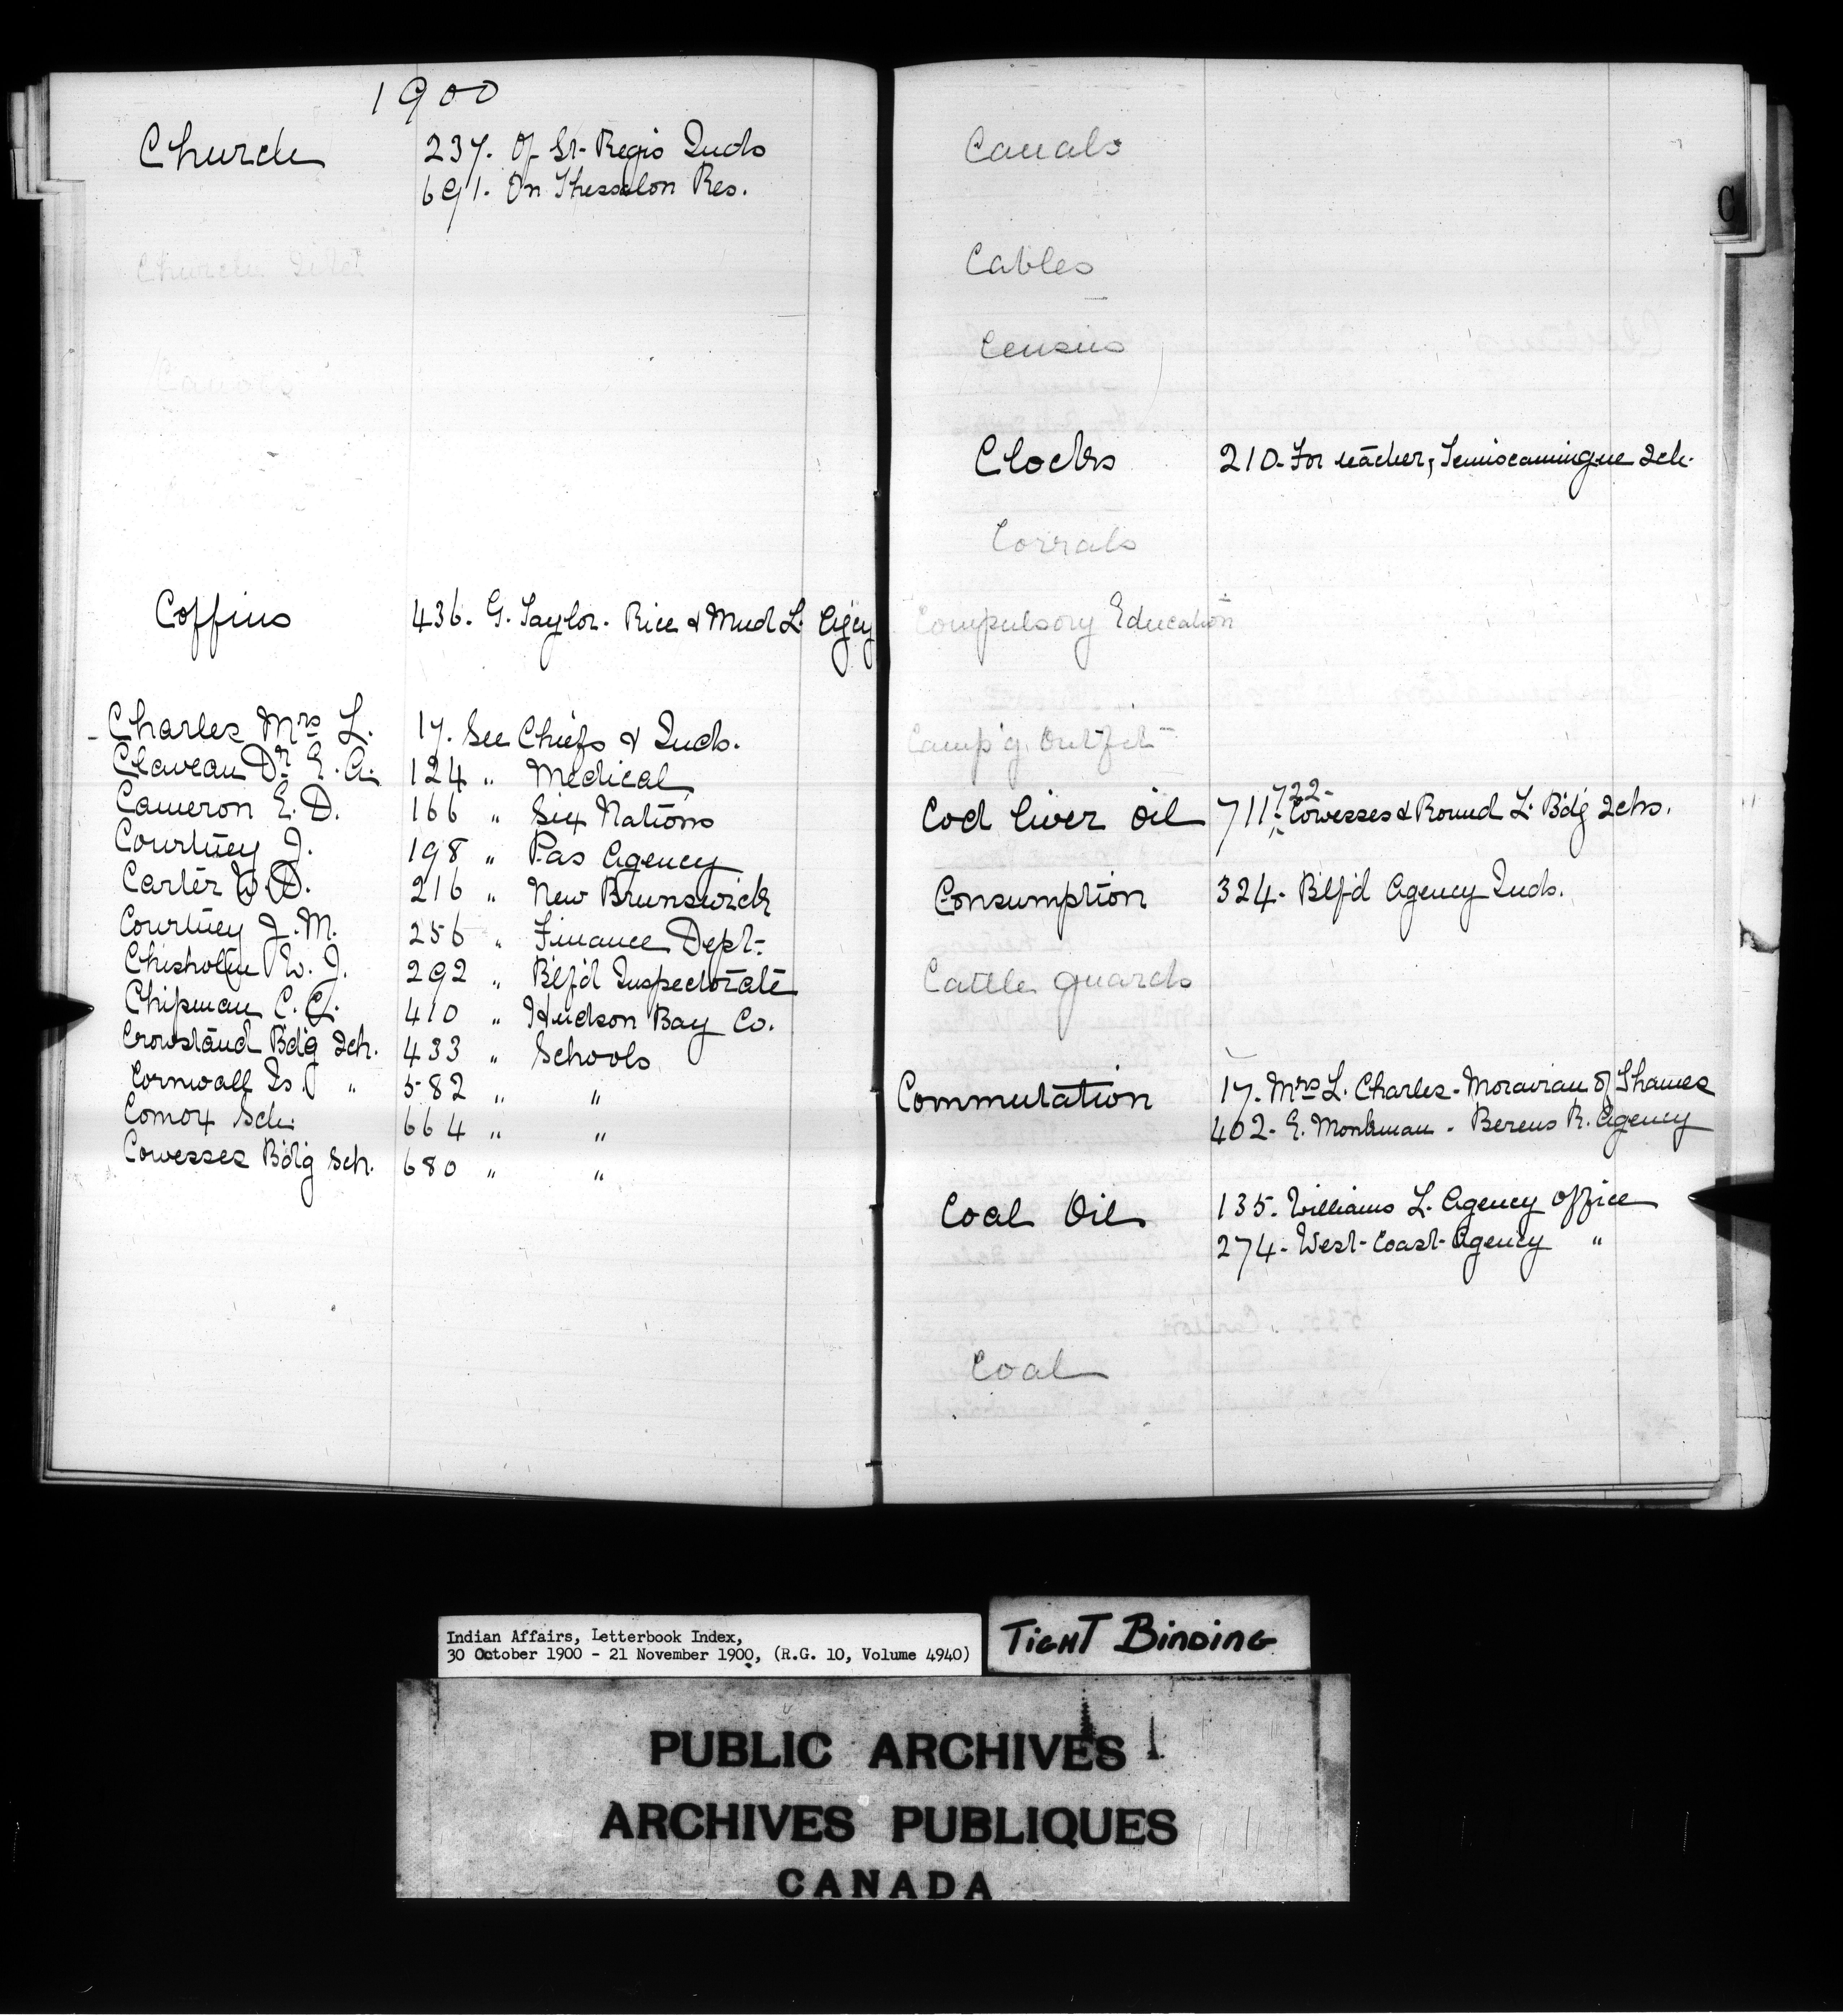 1900
Church 237. Of St. Regis Inds
691. On Thessalon Res.
Church Site
Canoes
Coffins 436. G. Taylor. Rice & Mud L. Agcy
Charles Mrs L. 17. See Chiefs & Inds.
Claveau Dr E. A. 124 " Medical
Cameron E. D. 166 " Six Nations
Courtney J. 198 " Pas Agency
Carter W. D. 216 " New Brunswick
Courtney J. M. 256 " Finance Dept.
Chisholm W. J. 292 " Btlf'd Inspectorate
Chipman C. C. 410 " Hudson Bay Co.
Crowstand Bdg Sch. 433 " Schools
Cornwall Is. " 582 " "
Comox Sch. 664 " "
Cowesses Bdg Sch. 680 " "
C
Canals
Cables
Census
Clocks 210. For teacher, Temiscamingue Sch.
Corrals
Compulsory Education
Camp'g Outfit
Cod liver oil 711. 722. Cowesses & Round L. Bdg Schs.
Consumption 324. Btlf'd Agency Inds.
Cattle guards
Commutation 17. Mrs L. Charles. Moravian of Thames
402. E. Monkman. Berens R. Agency
Coal Oil 135. Williams L. Agency office
274. West Coast Agency "
Coal
Indian Affairs, Letterbook Index,
30 October 1900 - 21 November 1900, (R.G. 10, Volume 4940)
TIGHT BINDING
PUBLIC ARCHIVES
ARCHIVES PUBLIQUES
CANADA